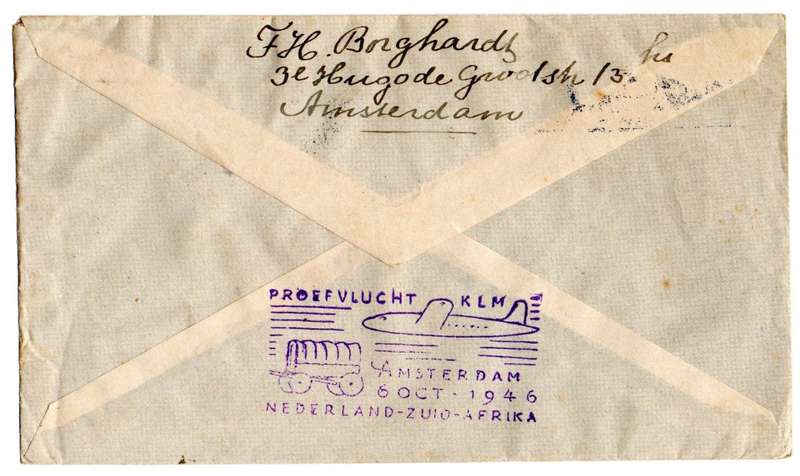 F.H. Borghardt
3e Hugo de Grootstr 13 hs
Amsterdam
PROEFVLUCHT KLM
AMSTERDAM
6 OCT · 1946
NEDERLAND-ZUID-AFRIKA